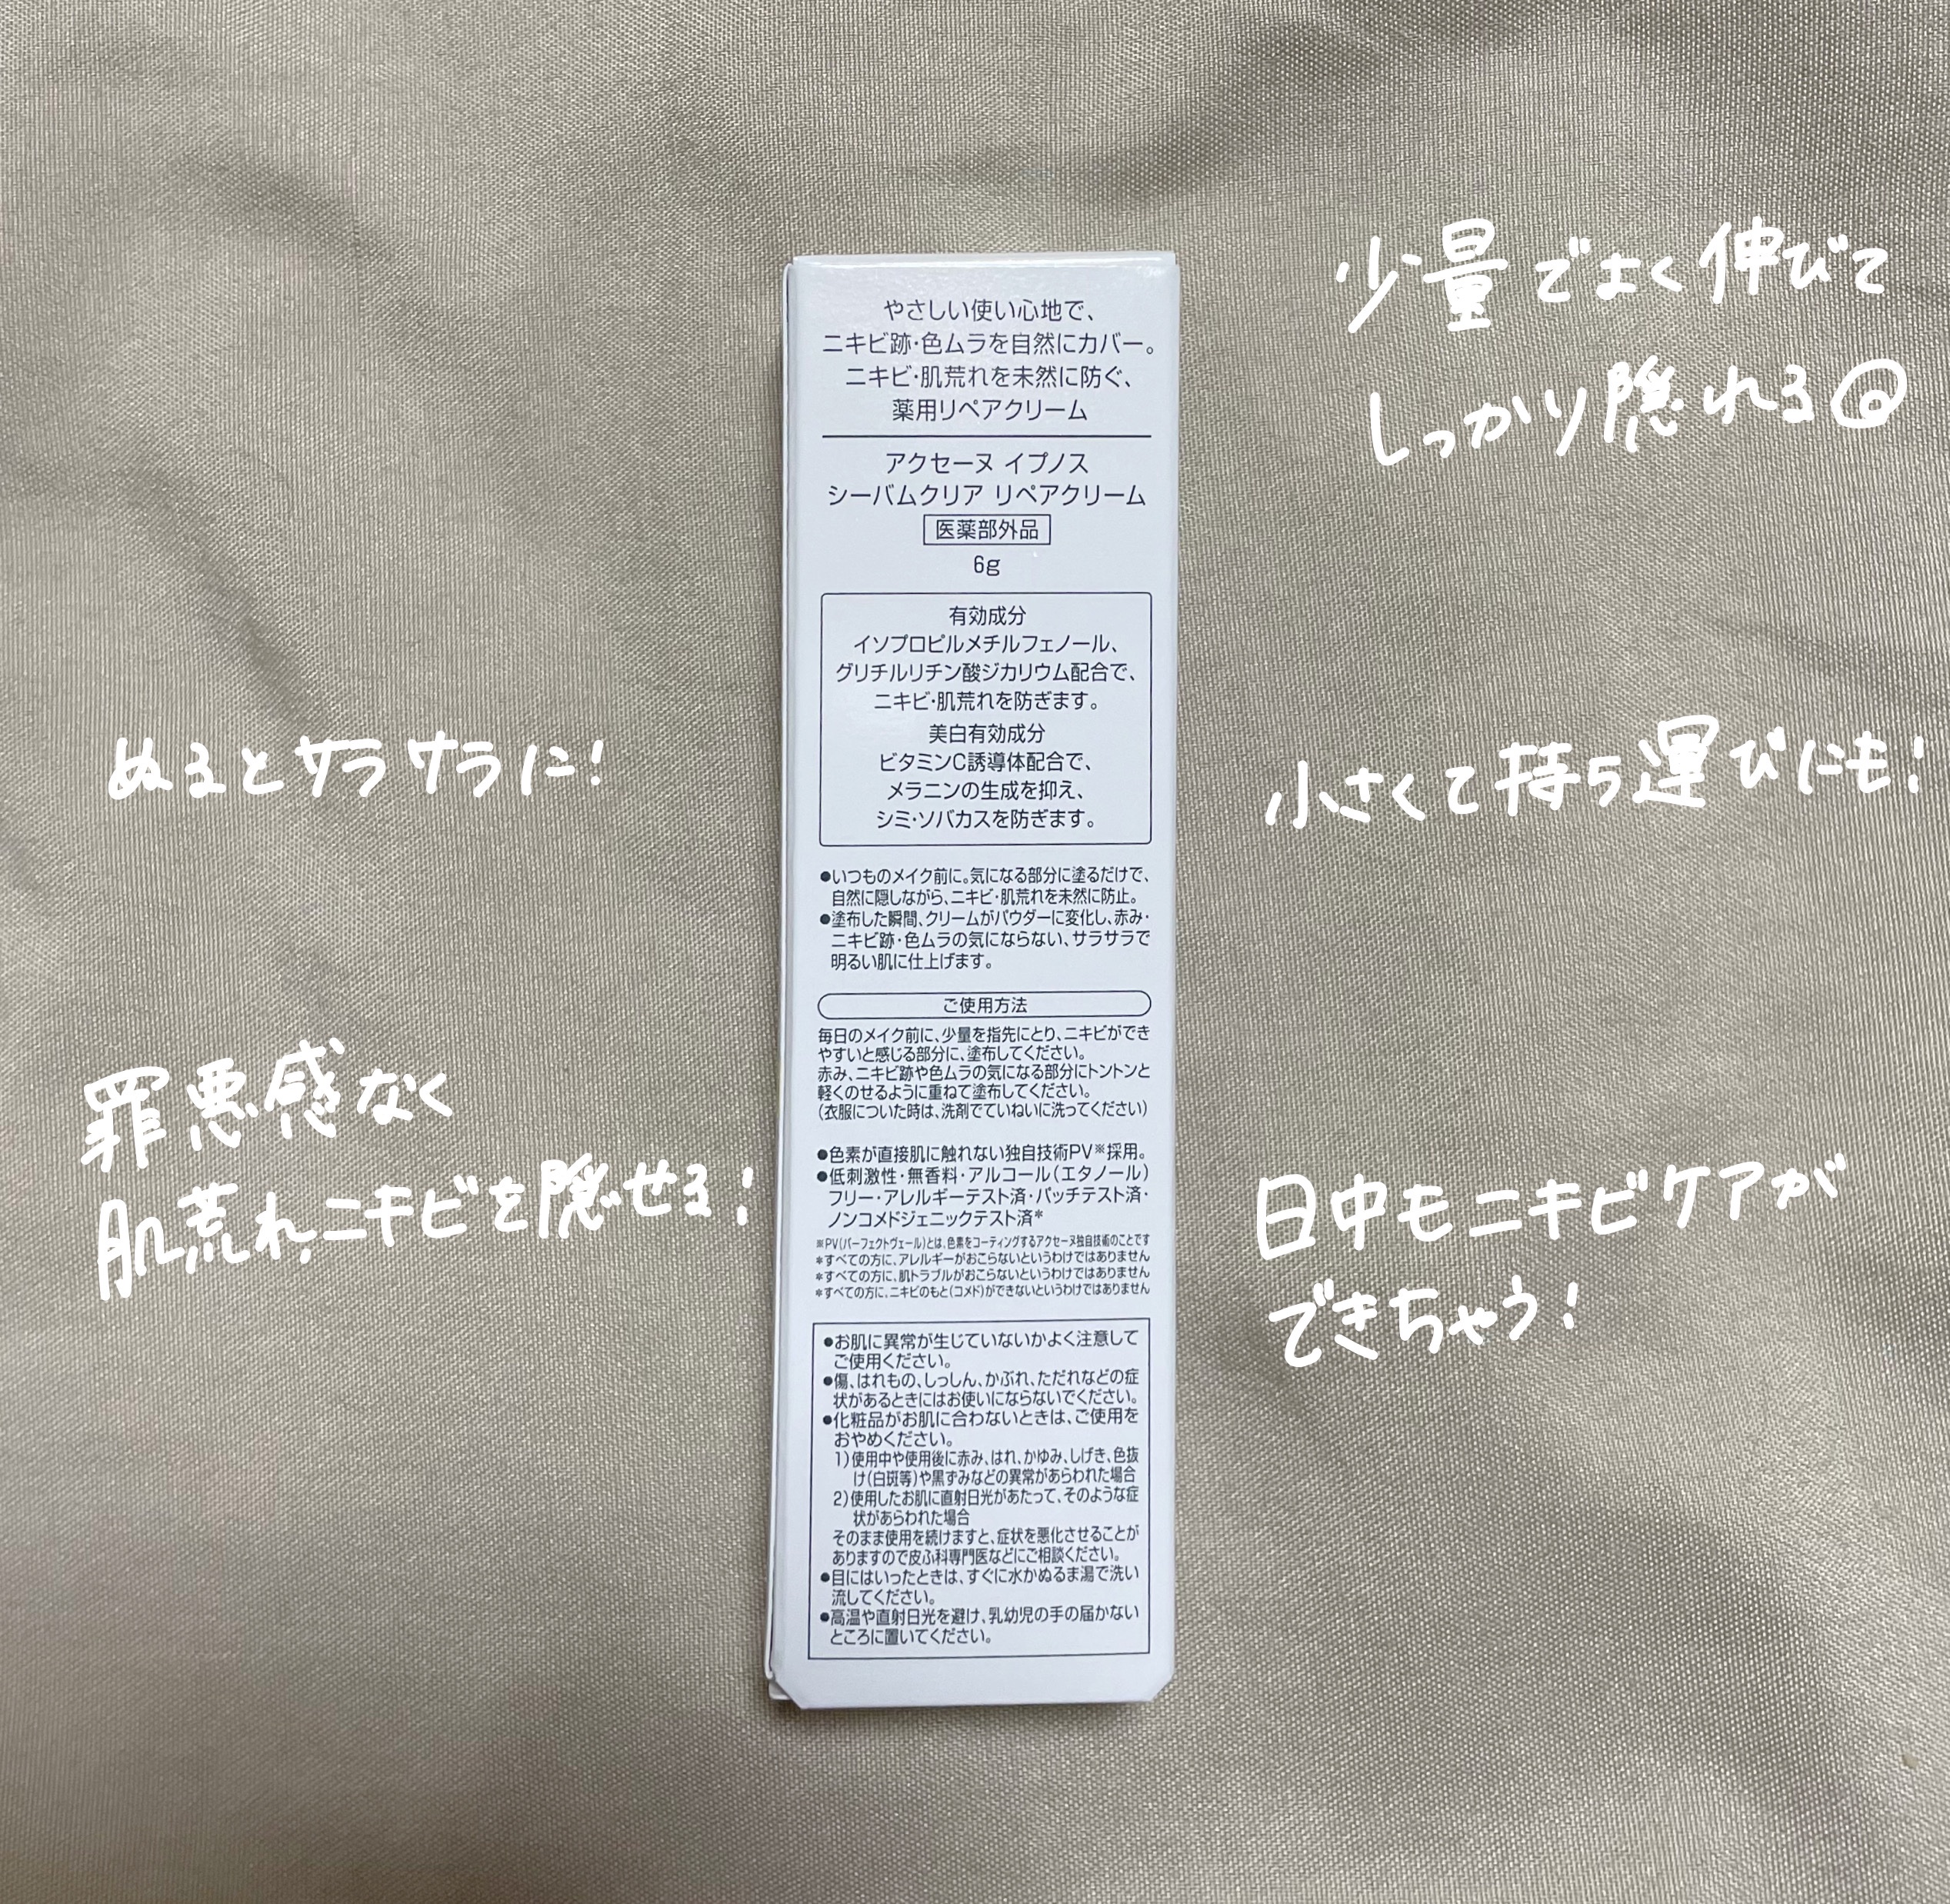 やさしい使い心地で、
ニキビ跡・色ムラを自然にカバー。
ニキビ・肌荒れを未然に防ぐ、
薬用リペアクリーム
アクセーヌ イプノス
シーバムクリア リペアクリーム
医薬部外品
6g
有効成分
イソプロピルメチルフェノール、
グリチルリチン酸ジカリウム配合で、
ニキビ・肌荒れを防ぎます。
美白有効成分
ビタミンC誘導体配合で、
メラニンの生成を抑え、
シミ・ソバカスを防ぎます。
●いつものメイク前に。気になる部分に塗るだけで、
自然に隠しながら、ニキビ・肌荒れを未然に防止。
●塗布した瞬間、クリームがパウダーに変化し、赤み・
ニキビ跡・色ムラの気にならない、サラサラで
明るい肌に仕上げます。
ご使用方法
毎日のメイク前に、少量を指先にとり、ニキビができ
やすいと感じる部分に、塗布してください。
赤み、ニキビ跡や色ムラの気になる部分にトントンと
軽くのせるように重ねて塗布してください。
(衣服についた時は、洗剤でていねいに洗ってください)
●色素が直接肌に触れない独自技術PV※採用。
●低刺激性・無香料・アルコール(エタノール)
フリー・アレルギーテスト済・パッチテスト済・
ノンコメドジェニックテスト済*
※PV(パーフェクトヴェール)とは、色素をコーティングするアクセーヌ独自技術のことです
*すべての方に、アレルギーがおこらないというわけではありません
*すべての方に、肌トラブルがおこらないというわけではありません
*すべての方に、ニキビのもと(コメド)ができないというわけではありません
●お肌に異常が生じていないかよく注意して
ご使用ください。
●傷、はれもの、しっしん、かぶれ、ただれなどの症
状があるときにはお使いにならないでください。
●化粧品がお肌に合わないときは、ご使用を
おやめください。
1)使用中や使用後に赤み、はれ、かゆみ、しげき、色抜
け(白斑等)や黒ずみなどの異常があらわれた場合
2)使用したお肌に直射日光があたって、そのような症
状があらわれた場合
そのまま使用を続けますと、症状を悪化させることが
ありますので皮ふ科専門医などにご相談ください。
●目にはいったときは、すぐに水かぬるま湯で洗い
流してください。
●高温や直射日光を避け、乳幼児の手の届かない
ところに置いてください。
少量でよく伸びて
しっかり隠れる◎
ぬるとサラサラに!
小さくて持ち運びにも!
罪悪感なく
肌荒れ、ニキビを隠せる!
日中もニキビケアが
できちゃう!